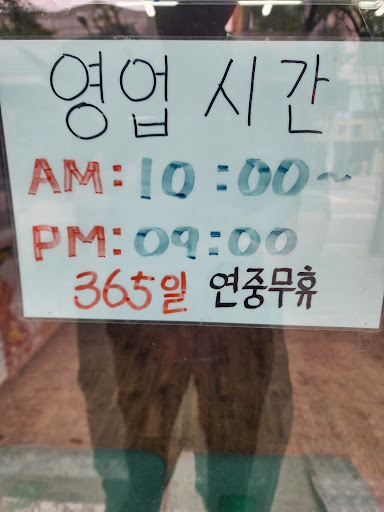 영업 시간
AM: 10:00~
PM: 09:00
365일 연중무휴